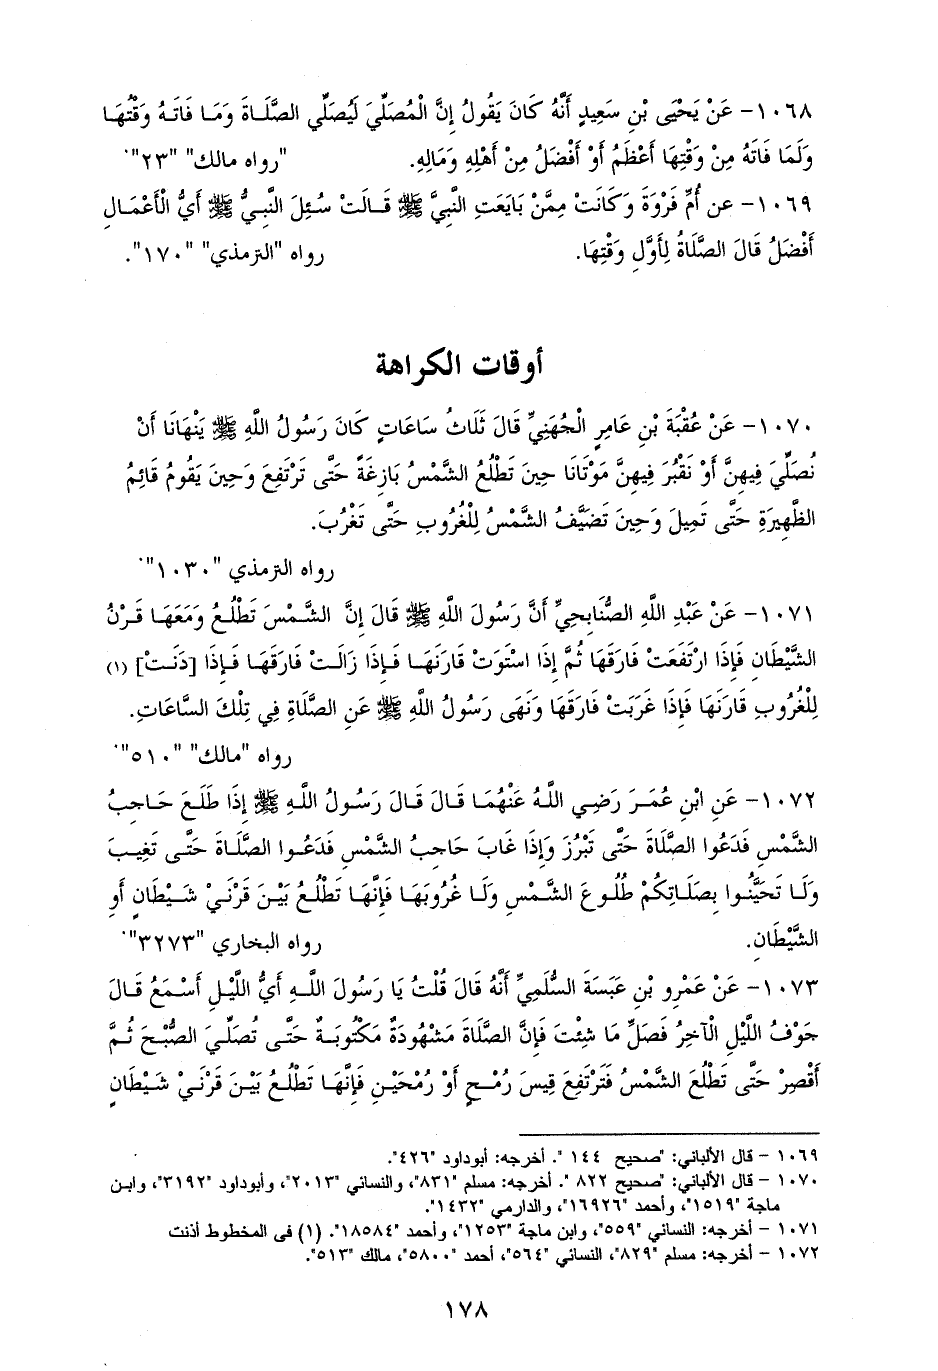 ١٠٦٨- عَنْ يَحْيَى بْنِ سَعِيدٍ أَنَّهُ كَانَ يَقُولُ إِنَّ الْمُصَلِّيَ لَيُصَلِّي الصَّلَاةَ وَمَا فَاتَهُ وَقْتُهَا
وَلَمَا فَاتَهُ مِنْ وَقْتِهَا أَعْظَمُ أَوْ أَفْضَلُ مِنْ أَهْلِهِ وَمَالِهِ. "رواه مالك" "٢٣".
١٠٦٩- عن أُمِّ فَرْوَةَ وَكَانَتْ مِمَّنْ بَايَعَتِ النَّبِيَّ ﷺ قَالَتْ سُئِلَ النَّبِيُّ ﷺ أَيُّ الْأَعْمَالِ
أَفْضَلُ قَالَ الصَّلَاةُ لِأَوَّلِ وَقْتِهَا. رواه "الترمذي" "١٧٠".
أوقات الكراهة
١٠٧٠- عَنْ عُقْبَةَ بْنِ عَامِرٍ الْجُهَنِيِّ قَالَ ثَلَاثُ سَاعَاتٍ كَانَ رَسُولُ اللَّهِ ﷺ يَنْهَانَا أَنْ
نُصَلِّيَ فِيهِنَّ أَوْ نَقْبُرَ فِيهِنَّ مَوْتَانَا حِينَ تَطْلُعُ الشَّمْسُ بَازِغَةً حَتَّى تَرْتَفِعَ وَحِينَ يَقُومُ قَائِمُ
الظَّهِيرَةِ حَتَّى تَمِيلَ وَحِينَ تَضَيَّفُ الشَّمْسُ لِلْغُرُوبِ حَتَّى تَغْرُبَ.
رواه الترمذي "١٠٣٠".
١٠٧١- عَنْ عَبْدِ اللَّهِ الصُّنَابِحِيِّ أَنَّ رَسُولَ اللَّهِ ﷺ قَالَ إِنَّ الشَّمْسَ تَطْلُعُ وَمَعَهَا قَرْنُ
الشَّيْطَانِ فَإِذَا ارْتَفَعَتْ فَارَقَهَا ثُمَّ إِذَا اسْتَوَتْ قَارَنَهَا فَإِذَا زَالَتْ فَارَقَهَا فَإِذَا [دَنَتْ] (١)
لِلْغُرُوبِ قَارَنَهَا فَإِذَا غَرَبَتْ فَارَقَهَا وَنَهَى رَسُولُ اللَّهِ ﷺ عَنِ الصَّلَاةِ فِي تِلْكَ السَّاعَاتِ.
رواه "مالك" "٥١٠".
١٠٧٢- عَنِ ابْنِ عُمَرَ رَضِي اللَّهُ عَنْهُمَا قَالَ قَالَ رَسُولُ اللَّهِ ﷺ إِذَا طَلَعَ حَاجِبُ
الشَّمْسِ فَدَعُوا الصَّلَاةَ حَتَّى تَبْرُزَ وَإِذَا غَابَ حَاجِبُ الشَّمْسِ فَدَعُوا الصَّلَاةَ حَتَّى تَغِيبَ
وَلَا تَحَيَّنُوا بِصَلَاتِكُمْ طُلُوعَ الشَّمْسِ وَلَا غُرُوبَهَا فَإِنَّهَا تَطْلُعُ بَيْنَ قَرْنَيْ شَيْطَانٍ أَوِ
الشَّيْطَانِ. رواه البخاري "٣٢٧٣".
١٠٧٣- عَنْ عَمْرِو بْنِ عَبَسَةَ السُّلَمِيِّ أَنَّهُ قَالَ قُلْتُ يَا رَسُولَ اللَّهِ أَيُّ اللَّيْلِ أَسْمَعُ قَالَ
جَوْفُ اللَّيْلِ الْآخِرُ فَصَلِّ مَا شِئْتَ فَإِنَّ الصَّلَاةَ مَشْهُودَةٌ مَكْتُوبَةٌ حَتَّى تُصَلِّيَ الصُّبْحَ ثُمَّ
أَقْصِرْ حَتَّى تَطْلُعَ الشَّمْسُ فَتَرْتَفِعَ قِيسَ رُمْحٍ أَوْ رُمْحَيْنِ فَإِنَّهَا تَطْلُعُ بَيْنَ قَرْنَيْ شَيْطَانٍ
١٠٦٩ - قال الألباني: "صحيح ١٤٤ ". أخرجه: أبوداود "٤٢٦".
١٠٧٠ - قال الألباني: "صحيح ٨٢٢ ". أخرجه: مسلم "٨٣١"، والنسائي "٢٠١٣"، وأبوداود "٣١٩٢"، وابن
ماجة "١٥١٩"، وأحمد "١٦٩٢٦"، والدارمي "١٤٣٢".
١٠٧١ - أخرجه: النسائي "٥٥٩"، وابن ماجة "١٢٥٣"، وأحمد "١٨٥٨٤". (١) فى المخطوط أذنت
١٠٧٢ - أخرجه: مسلم "٨٢٩"، النسائي "٥٦٤"، أحمد "٥٨٠٠"، مالك "٥١٣".
١٧٨